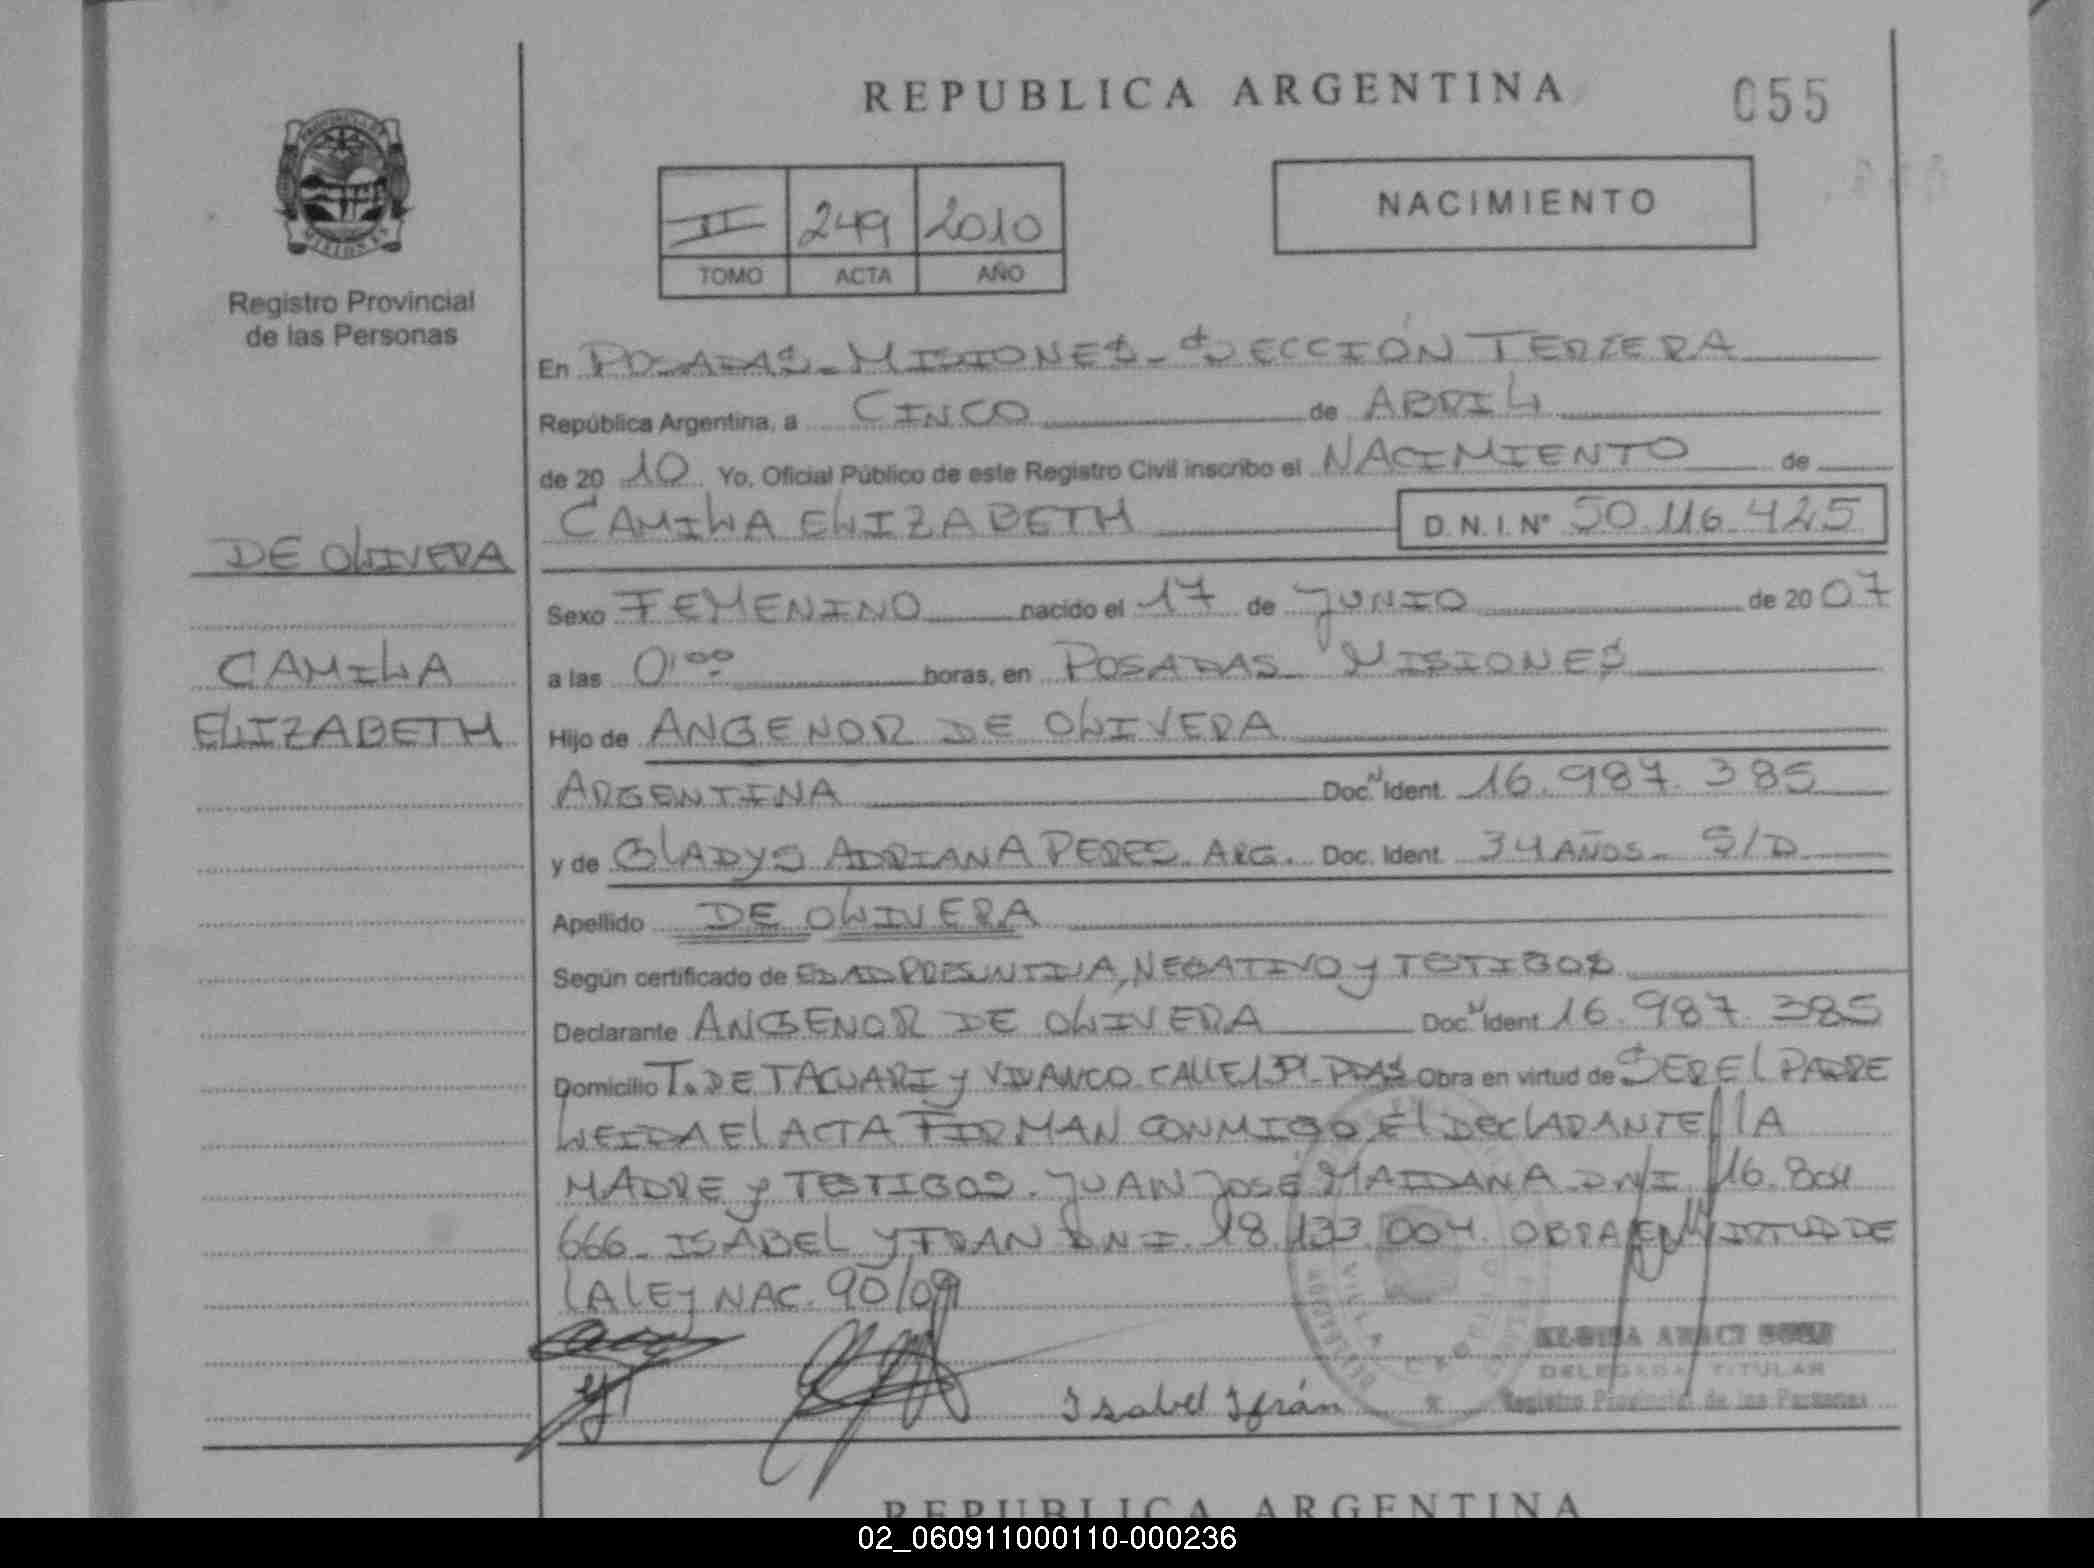 REPUBLICA ARGENTINA
055
II 249 2010
TOMO ACTA AÑO
NACIMIENTO
Registro Provincial
de las Personas
En POSADAS - MISIONES - SECCIÓN TERCERA
República Argentina, a CINCO de ABRIL
de 20 10 Yo, Oficial Público de este Registro Civil inscribo el NACIMIENTO de
CAMILA ELIZABETH D.N.I. Nº 50.116.425
DE OLIVERA
CAMILA
ELIZABETH
Sexo FEMENINO nacido el 17 de JUNIO de 20 07
a las 0:00 horas, en POSADAS MISIONES
Hijo de ANGENOR DE OLIVERA
ARGENTINA Doc. N Ident. 16.987.385
y de GLADYS ADRIANA PERES. ARG. Doc. Ident. 34 AÑOS - S/D
Apellido DE OLIVERA
Según certificado de EDAD PRESUNTIVA, NEGATIVO y TESTIGOS
Declarante ANGENOR DE OLIVERA Doc. N Ident 16.987.385
Domicilio T. DE TACUARI y VIVANCO CALLE 131 - PDAS Obra en virtud de SER EL PADRE
LEIDA EL ACTA FIRMAN CONMIGO EL DECLARANTE LA
MADRE y TESTIGOS. JUAN JOSÉ MAIDANA D.N.I 16.804
666 - ISABEL YFRAN D.N.I. 18.133.004. OBRA EN VIRTUD DE
LA LEY NAC. 90/09
Isabel Ifrán
DELEGADA TITULAR
Registro Provincial de las Personas
REPUBLICA ARGENTINA
02_060911000110-000236